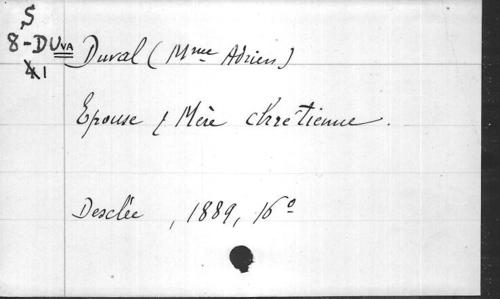 S
8-DUVA
Duval (Mme Adrien)
Epouse & Mère chrétienne.
Desclée, 1889, 16°